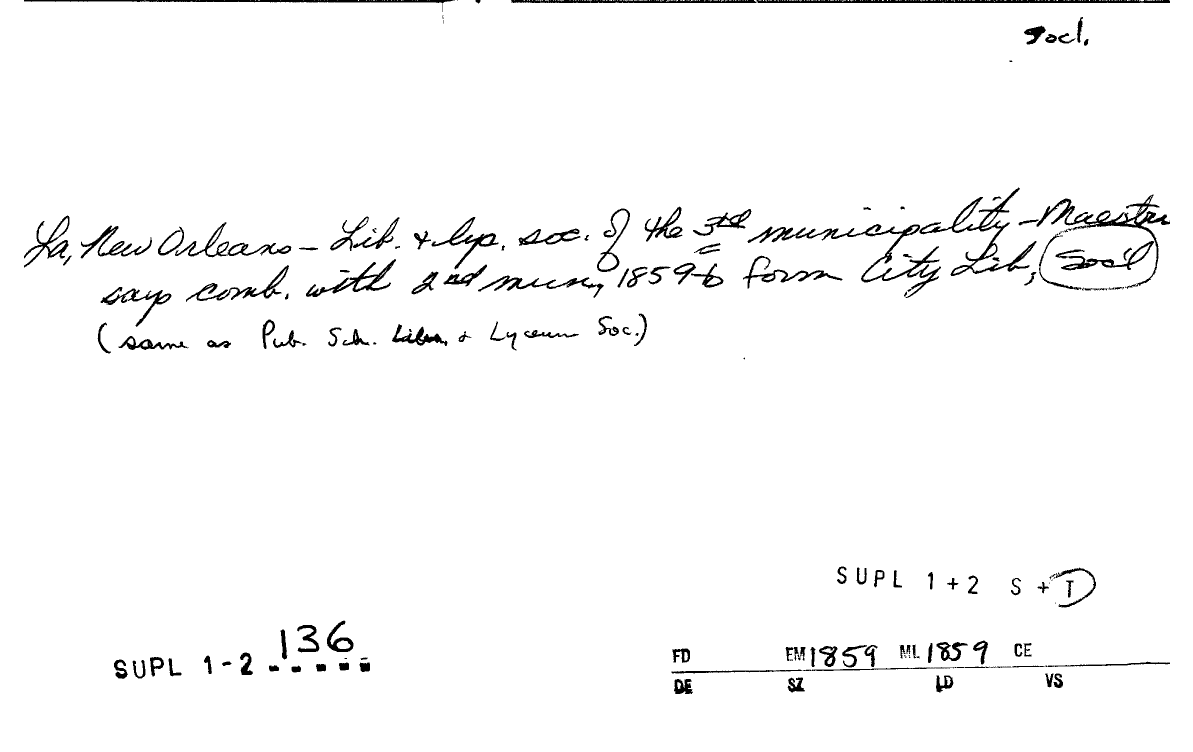 Socl.
La, New Orleans – Lib. + lyp. soc. of the 3rd municipality – Maestri
says comb. with 2nd mun, 1859 to form City Lib, Soc'l
(same as Pub. Sch. Libr. + Lyceum Soc.)
SUPL 1+2 S + T
SUPL 1-2 136
FD EM 1859 ML 1859 CE
DE SZ LD VS